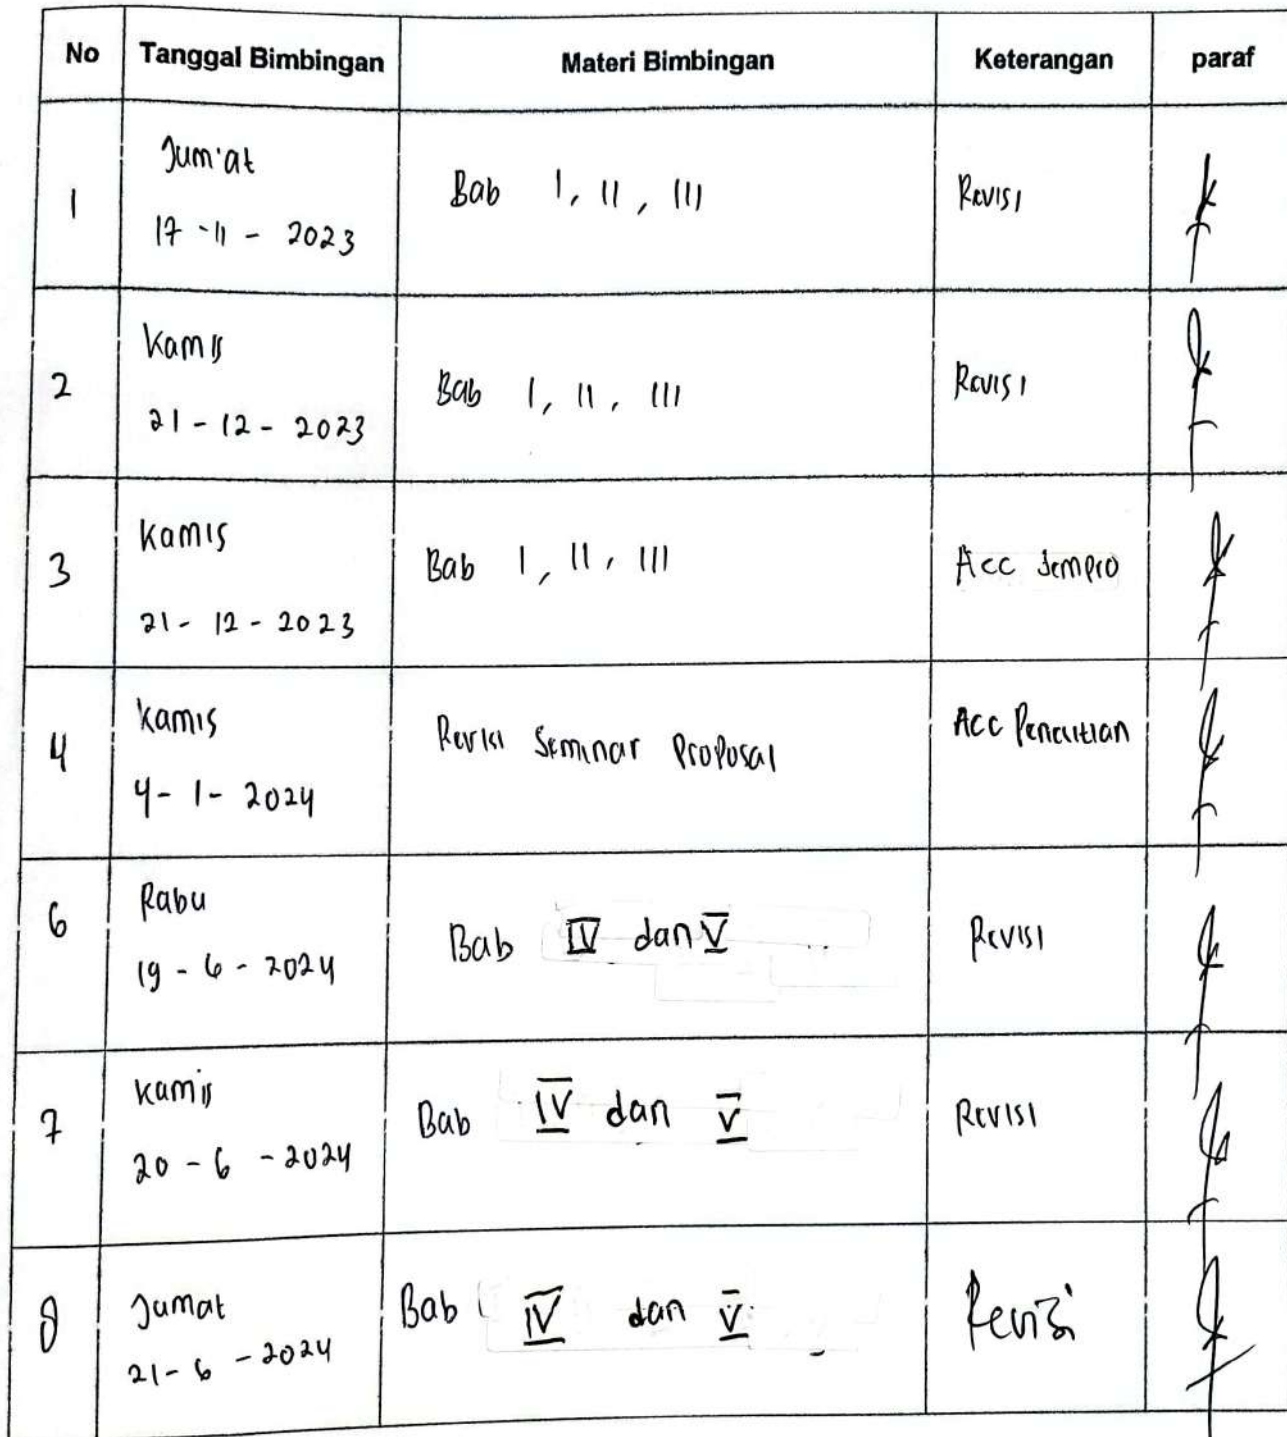 No Tanggal Bimbingan Materi Bimbingan Keterangan paraf
1 Jum'at
17-11-2023 Bab I, II, III Revisi
2 Kamis
21-12-2023 Bab I, II, III Revisi
3 Kamis
21-12-2023 Bab I, II, III Acc Sempro
4 Kamis
4-1-2024 Revisi Seminar Proposal Acc Penelitian
6 Rabu
19-6-2024 Bab IV dan V Revisi
7 Kamis
20-6-2024 Bab IV dan V Revisi
8 Jumat
21-6-2024 Bab IV dan V Revisi